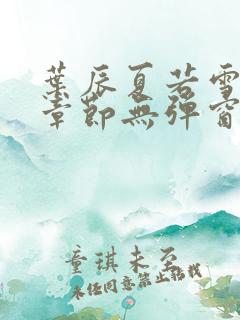 葉辰夏若雪
章節無彈窗
童琪未至
未任同意禁止转载